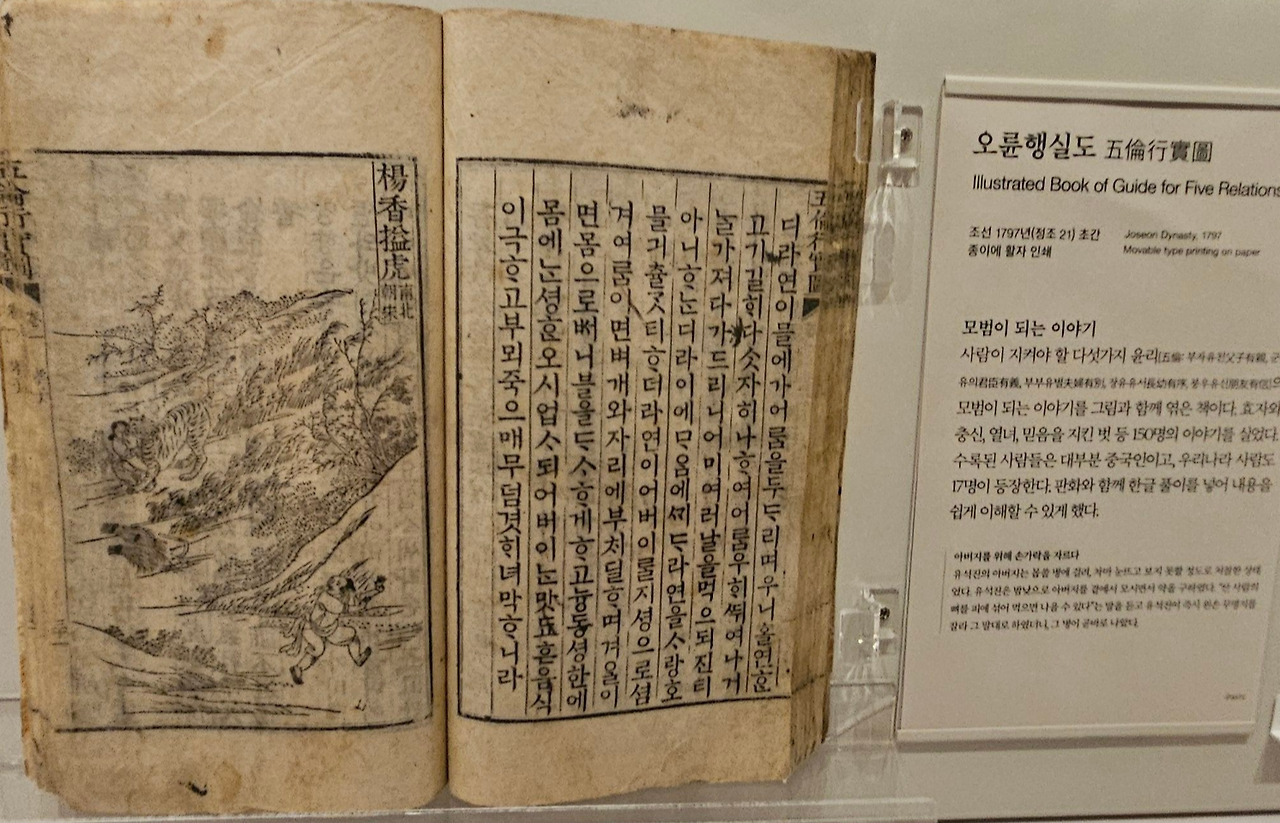 五倫行實圖
디라연이믈에가어룸을두ᄃᆞ리며우니홀연ᄒᆞᆫ
고기길히다ᄉᆞᆺ자히나ᄒᆞ여어룸우ᄒᆡ뛰여나거
ᄂᆞᆯ가져다가드리니어미여러날을먹으되진티
아니ᄒᆞᄂᆞᆫ디라이에ᄆᆞ음에ᄭᆡᄃᆞ라연을ᄉᆞ랑ᄒᆞ
믈기ᄎᆞᆯᄀᆞᆺ티ᄒᆞ더라연이어버이ᄅᆞᆯ지셩으로셤
겨여룸이면벼개와자리에부쳐딜ᄒᆞ며겨ᄋᆞᆯ이
면몸으로ᄡᅥ니블을ᄃᆞᄉᆞᄒᆞ게ᄒᆞ고능동셩한에
몸에ᄂᆞᆫ셩ᄒᆞᆫ오시업ᄉᆞ되어버이ᄂᆞᆫ맛됴흔음식
이극ᄒᆞ고부뫼죽으매무덤겻ᄒᆡ녀막ᄒᆞ니라
楊香搤虎 南北朝宋
오륜행실도 五倫行實圖
Illustrated Book of Guide for Five Relations
조선 1797년(정조 21) 초간
종이에 활자 인쇄
Joseon Dynasty, 1797
Movable type printing on paper
모범이 되는 이야기
사람이 지켜야 할 다섯가지 윤리[五倫: 부자유친父子有親, 군
유의君臣有義, 부부유별夫婦有別, 장유유서長幼有序, 붕우유신朋友有信]으
모범이 되는 이야기를 그림과 함께 엮은 책이다. 효자와
충신, 열녀, 믿음을 지킨 벗 등 150명의 이야기를 실었다.
수록된 사람들은 대부분 중국인이고, 우리나라 사람도
17명이 등장한다. 판화와 함께 한글 풀이를 넣어 내용을
쉽게 이해할 수 있게 했다.
아버지를 위해 손가락을 자르다
유석진의 아버지는 몹쓸 병에 걸려, 차마 눈뜨고 보지 못할 정도로 처참한 상태
였다. 유석진은 밤낮으로 아버지를 곁에서 모시면서 약을 구하였다. "산 사람의
뼈를 피에 섞어 먹으면 나을 수 있다"는 말을 듣고 유석진이 즉시 왼손 무명지를
잘라 그 말대로 하였더니, 그 병이 곧바로 나았다.